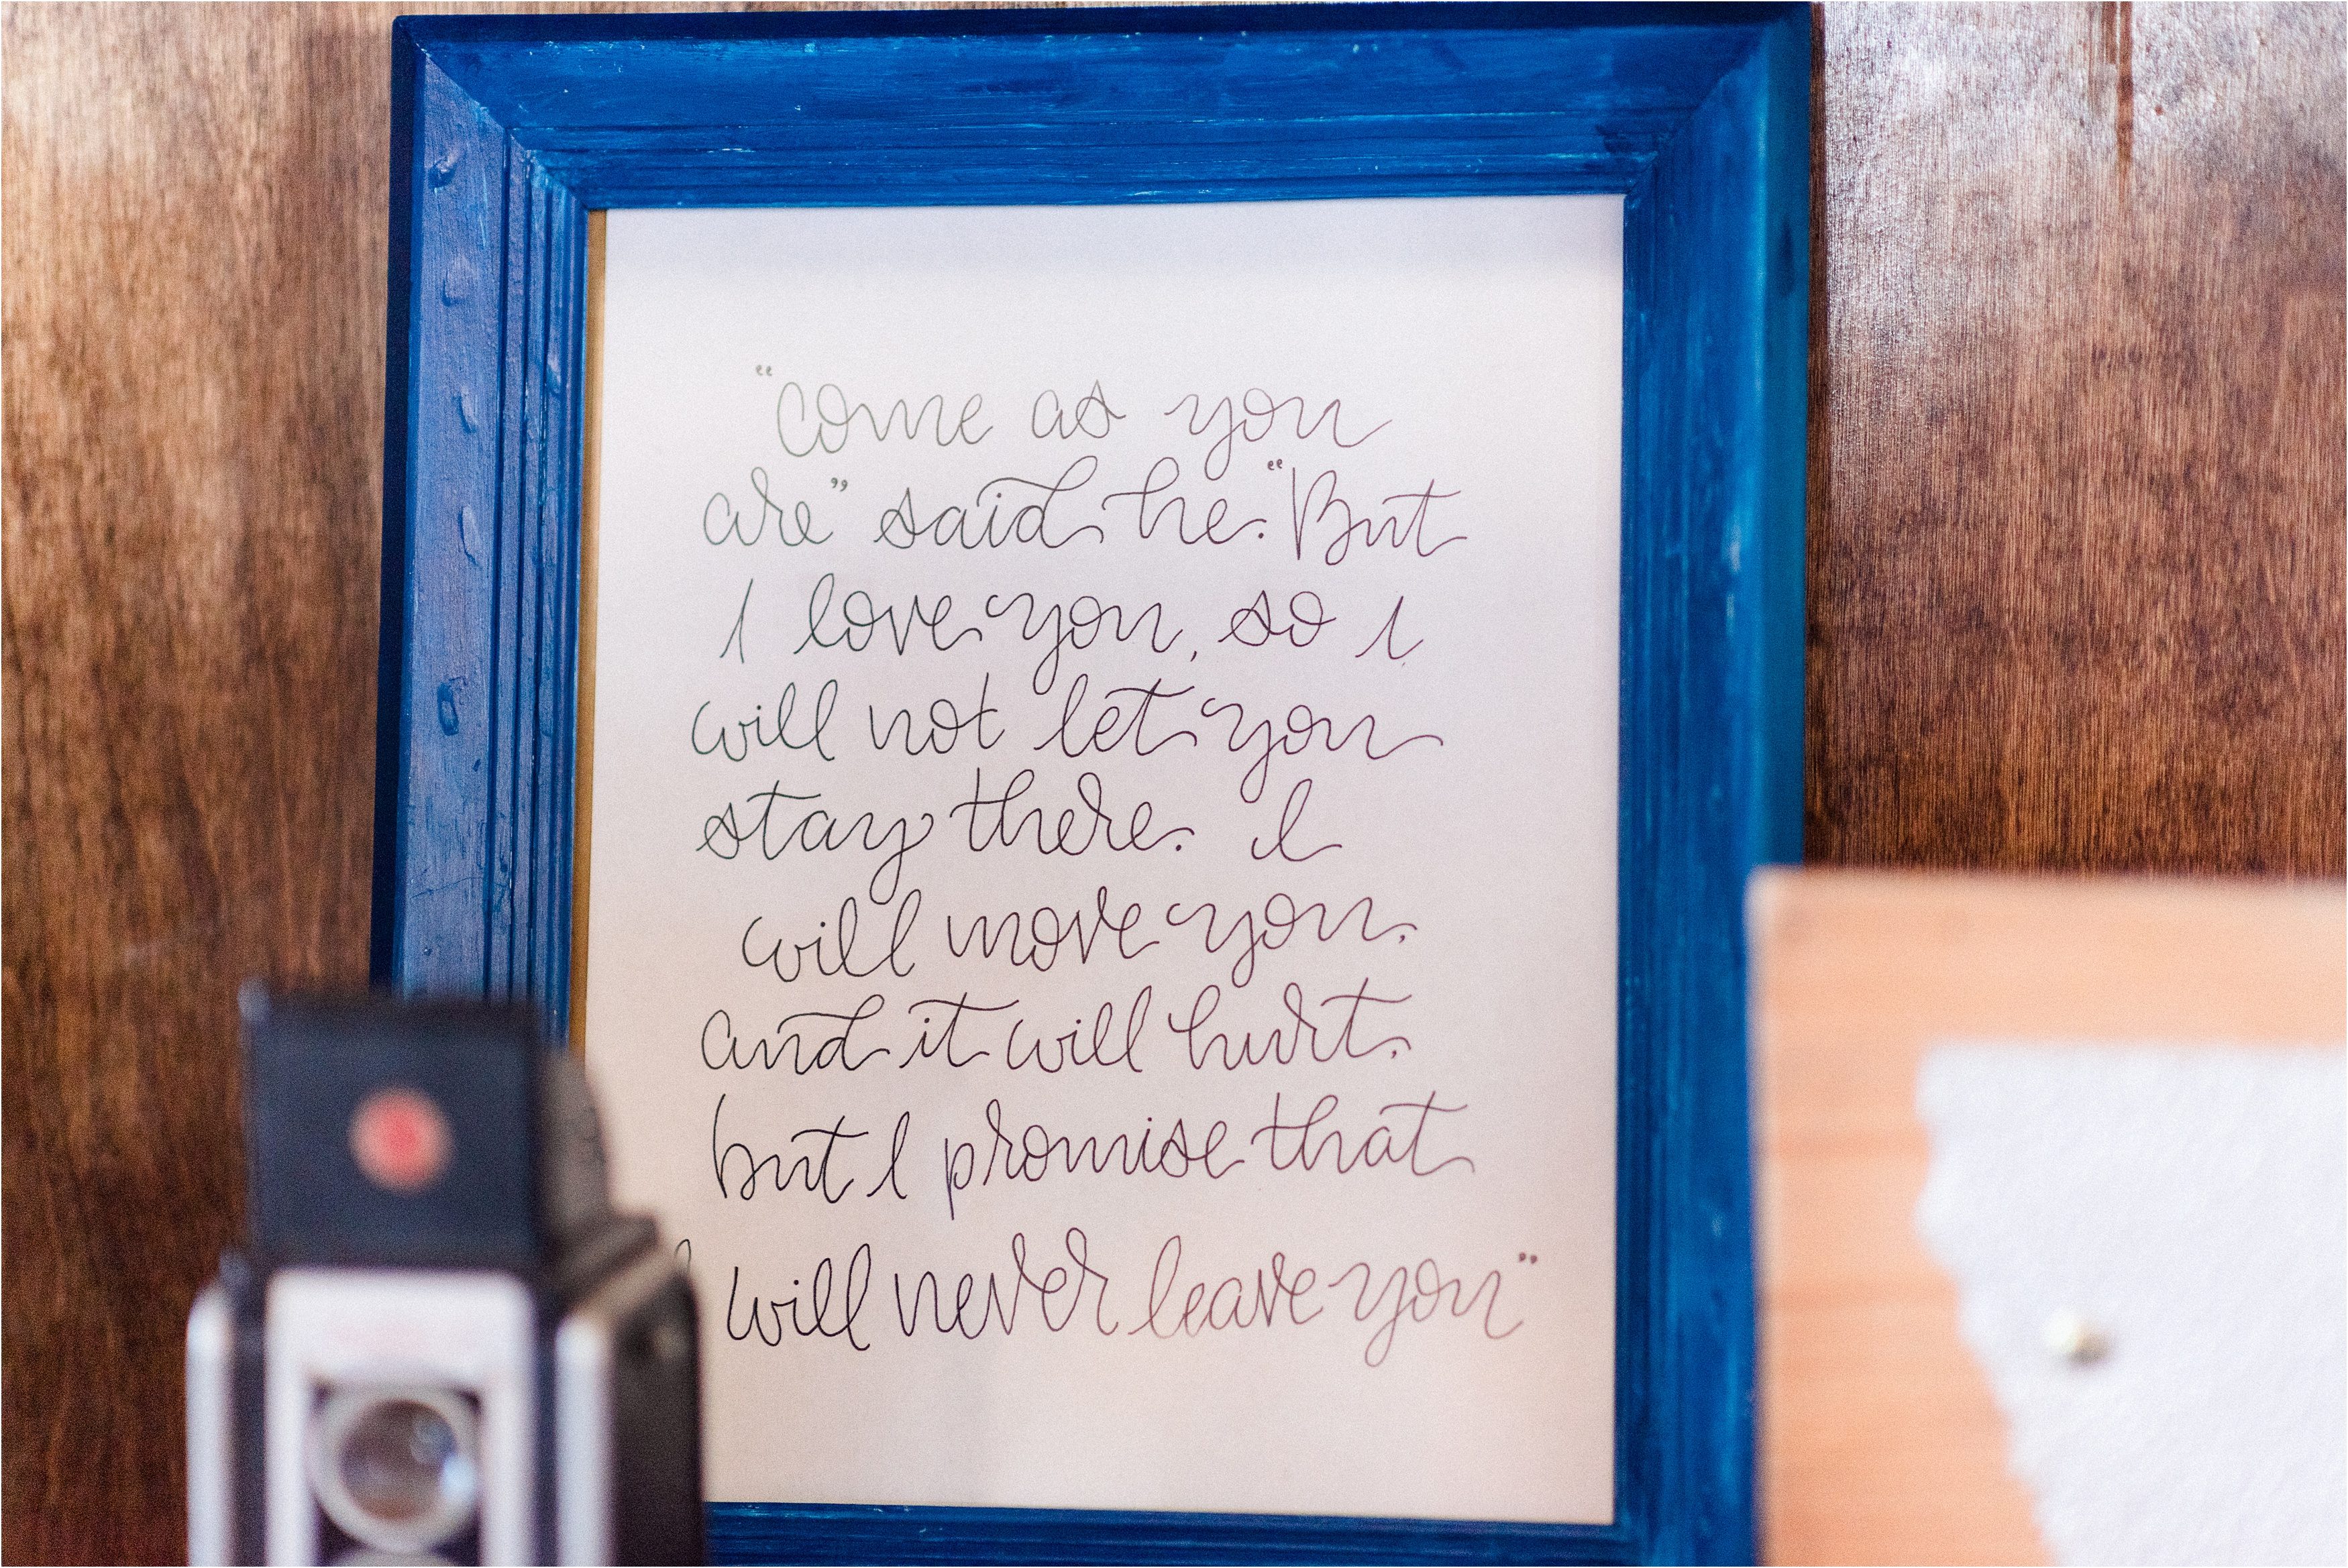 "Come as you
are" said he. "But
I love you, so I
will not let you
stay there. I
will move you.
and it will hurt.
but I promise that
will never leave you"